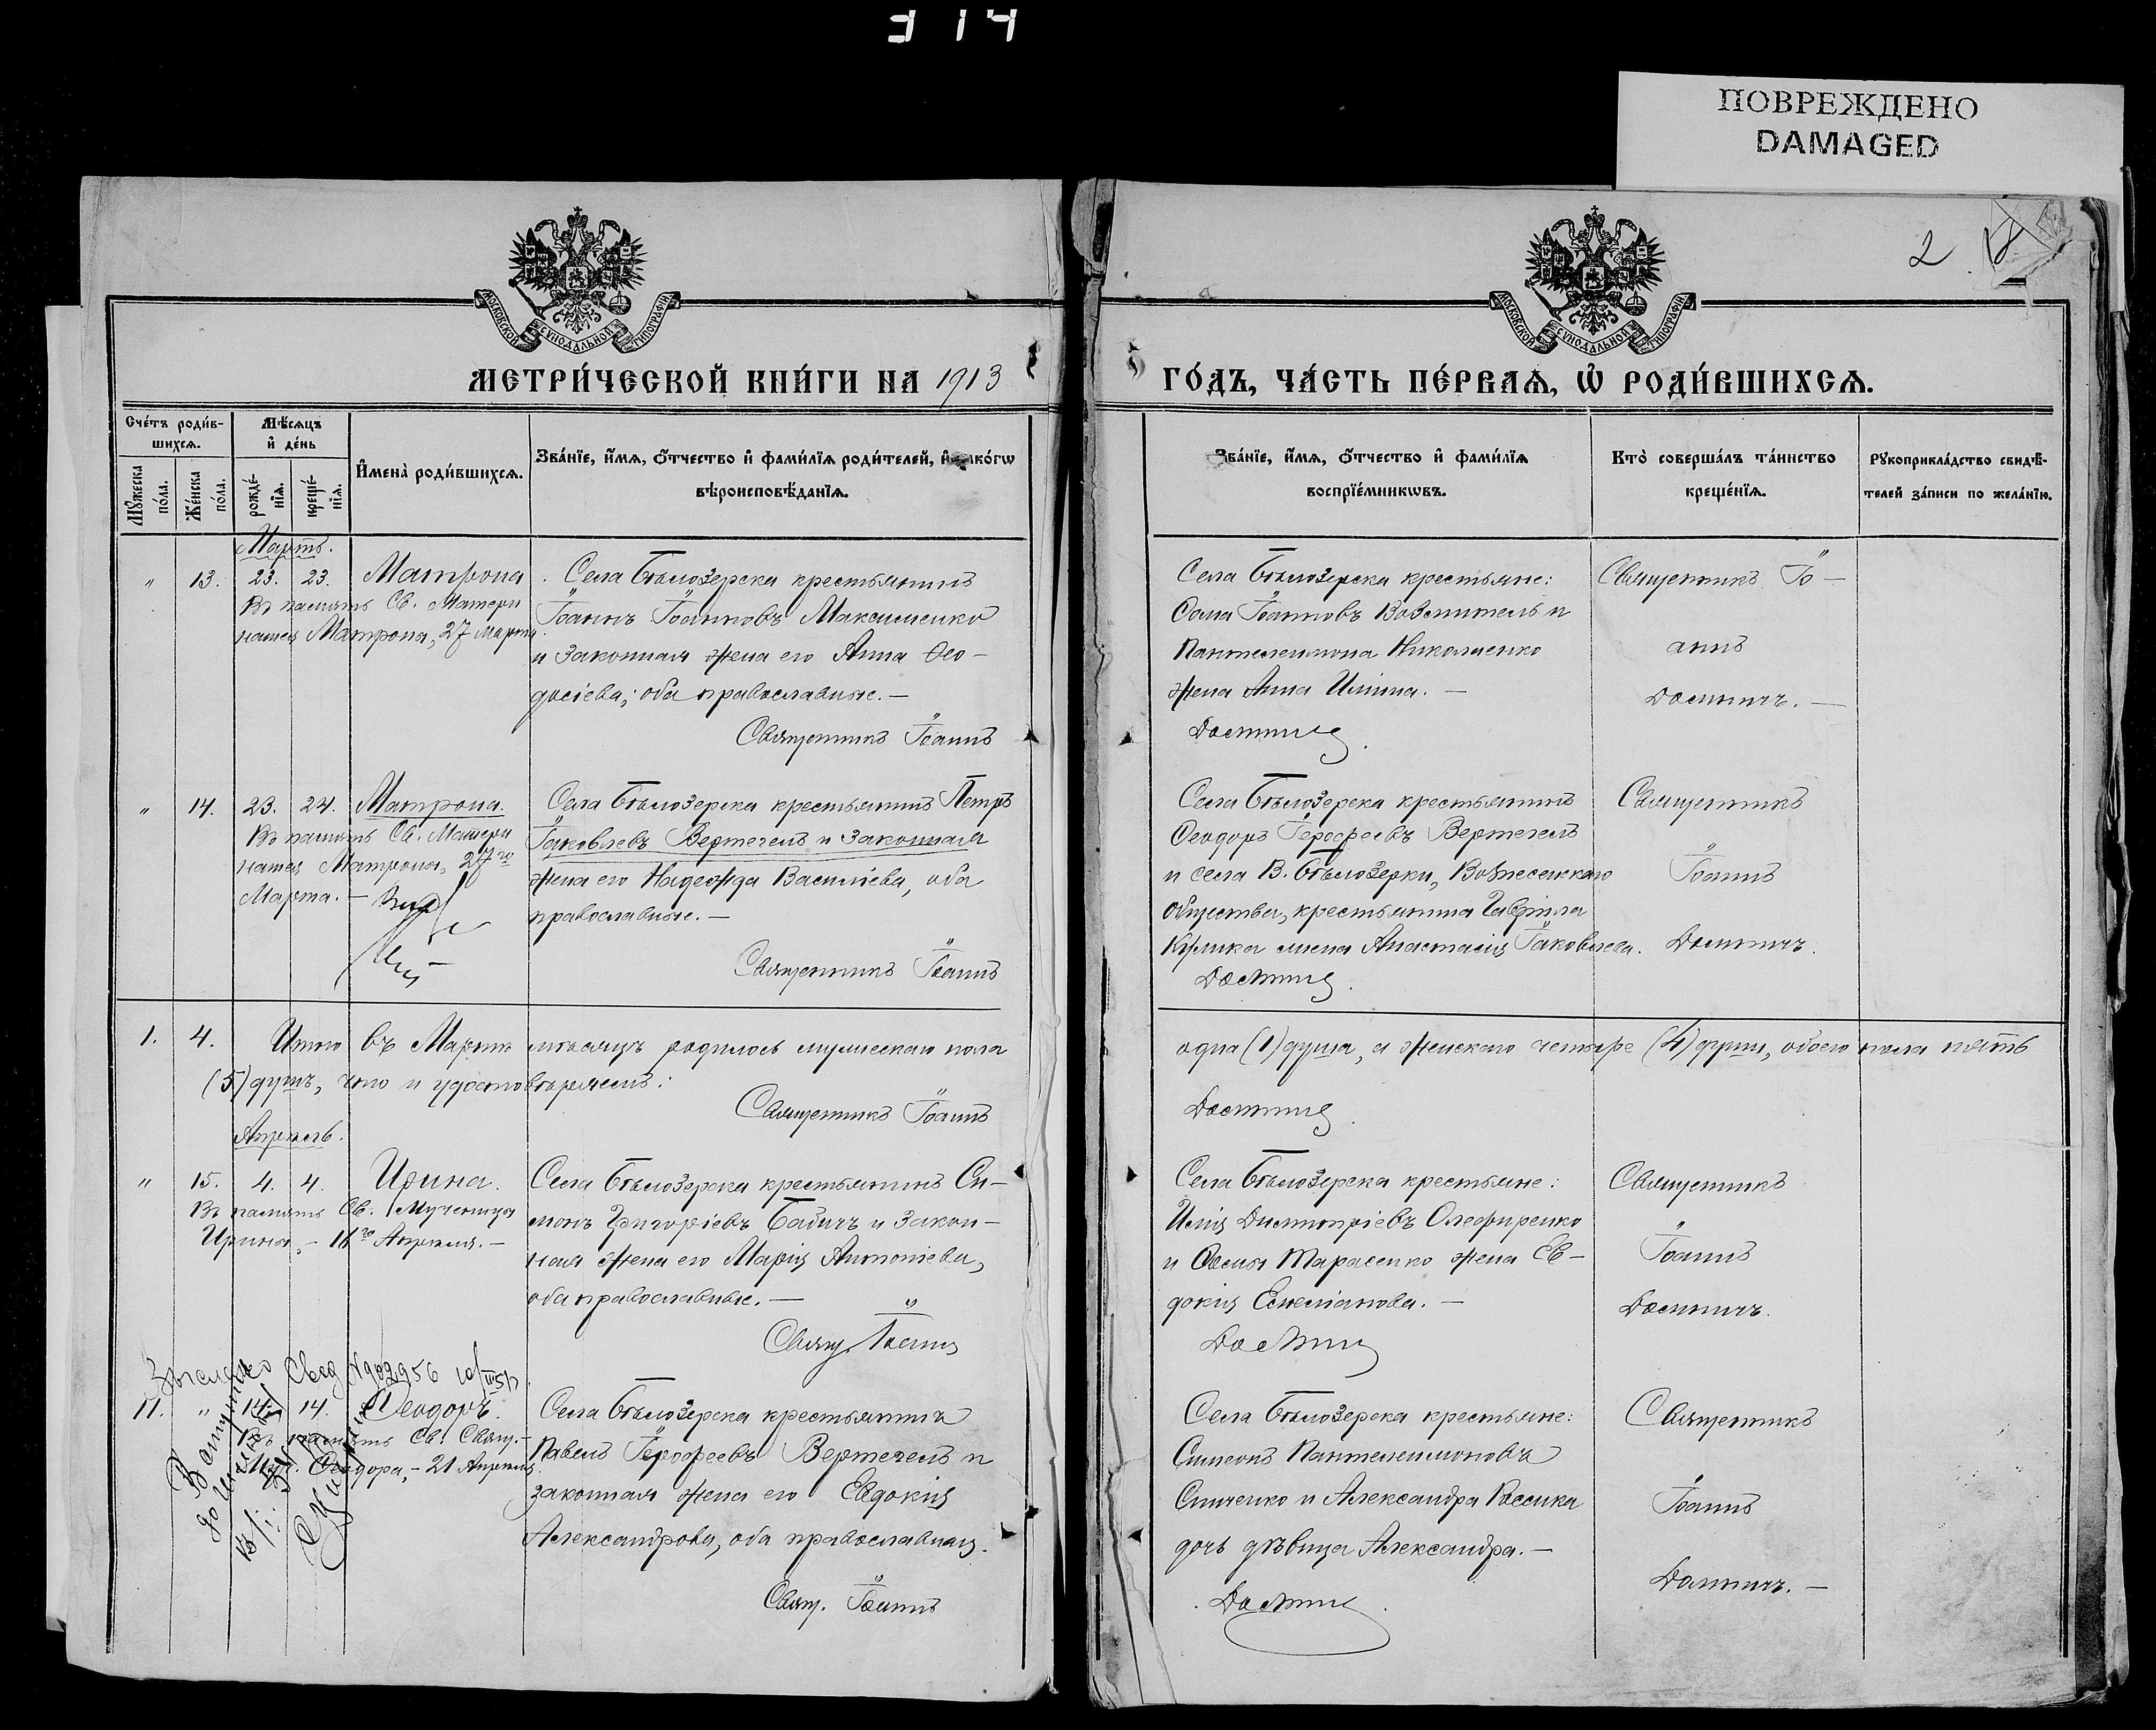 314
ПОВРЕЖДЕНО
DAMAGED
2
МОСКОВСКОЙ СѴНОДАЛЬНОЙ ТИПОГРАФІИ
МОСКОВСКОЙ СѴНОДАЛЬНОЙ ТИПОГРАФІИ
МЕТРИ́ЧЕСКОЙ КНИ́ГИ НА 1913
ГО́ДЪ, ЧА́СТЬ ПЕ́РВАѦ, Ѡ҆ РОДИ́ВШИХСѦ.
Сче́тъ роди́в-
шихсѧ.
Мꙋ́жеска по́ла.
Же́нска по́ла.
Мѣ́сѧцъ
и҆ де́нь
рожде́-
нїѧ.
креще́-
нїѧ.
И҆мена̀ роди́вшихсѧ.
Зва́нїе, и҆́мѧ, ѻ҆́тчество и҆ фами́лїѧ роди́телей, и҆ како́гѡ
вѣроисповѣ́данїѧ.
Зва́нїе, и҆́мѧ, ѻ҆́тчество и҆ фами́лїѧ
воспрїе́мникѡвъ.
Кто̀ соверша́лъ та́инство
креще́нїѧ.
Рꙋкоприкла́дство свидѣ́-
телей за́писи по жела́нїю.
Мартъ.
" 13. 23. 23. Матрона
Въ память Св. Матери
нашея Матроны, 27 марта.
Села Бѣлозерска крестьянинъ
Іоаннъ Іоанновъ Максименко
и законная жена его Анна Ѳео-
досіева; оба православные.—
Священникъ Іоаннъ
Села Бѣлозерска крестьяне:
Савва Іоанновъ и
Пантелеимона Николаенко
жена Анна Иліина. —
Священникъ Іо-
аннъ
" 14. 23. 24. Матрона.
Въ память Св. Матери
нашея Матроны, 27го
Марта.—
Села Бѣлозерска крестьянинъ Петръ
Іаковлевъ Вертегелъ и законная
жена его Надежда Василіева, оба
православные.—
Священникъ Іоаннъ
Села Бѣлозерска крестьянинъ
Ѳеодоръ Іероѳеевъ Вертегелъ
и села В. Бѣлозерки, Вознесенскаго
общества, крестьянина Гавріила
Кулика жена Анастасія Іаковлева.
Священникъ
Іоаннъ
1. 4. Итого въ Мартѣ мѣсяцѣ родилось мужескаго пола одна (1) душа, а женскаго четыре (4) души, обоего пола пять
(5) душъ, что и удостовѣряемъ:
Священникъ Іоаннъ
Апрѣль.
" 15. 4. 4. Ирина.
Въ память Св. Мученицы
Ирины,— 16го Апрѣля.—
Села Бѣлозерска крестьянинъ Си-
монъ Григоріевъ Бабичъ и закон-
ная жена его Марія Антоніева,
оба православные.—
Свящ. Іоаннъ
Села Бѣлозерска крестьяне:
Илія Димитріевъ Олефиренко
и Тарасенко жена Ев-
докія Емеліанова.—
Священникъ
Іоаннъ
11. " 14. 14. Ѳеодоръ.
Въ память Св. Свящ.-
Муч. Ѳеодора,— 21 Апрѣля.
Села Бѣлозерска крестьянинъ
Павелъ Іероѳеевъ Вертегелъ и
законная жена его Евдокія
Александрова, оба православны.
Свящ. Іоаннъ
Села Бѣлозерска крестьяне:
Симеонъ Пантелеимоновъ
и Александра
дочь дѣвица Александра.—
Священникъ
Іоаннъ